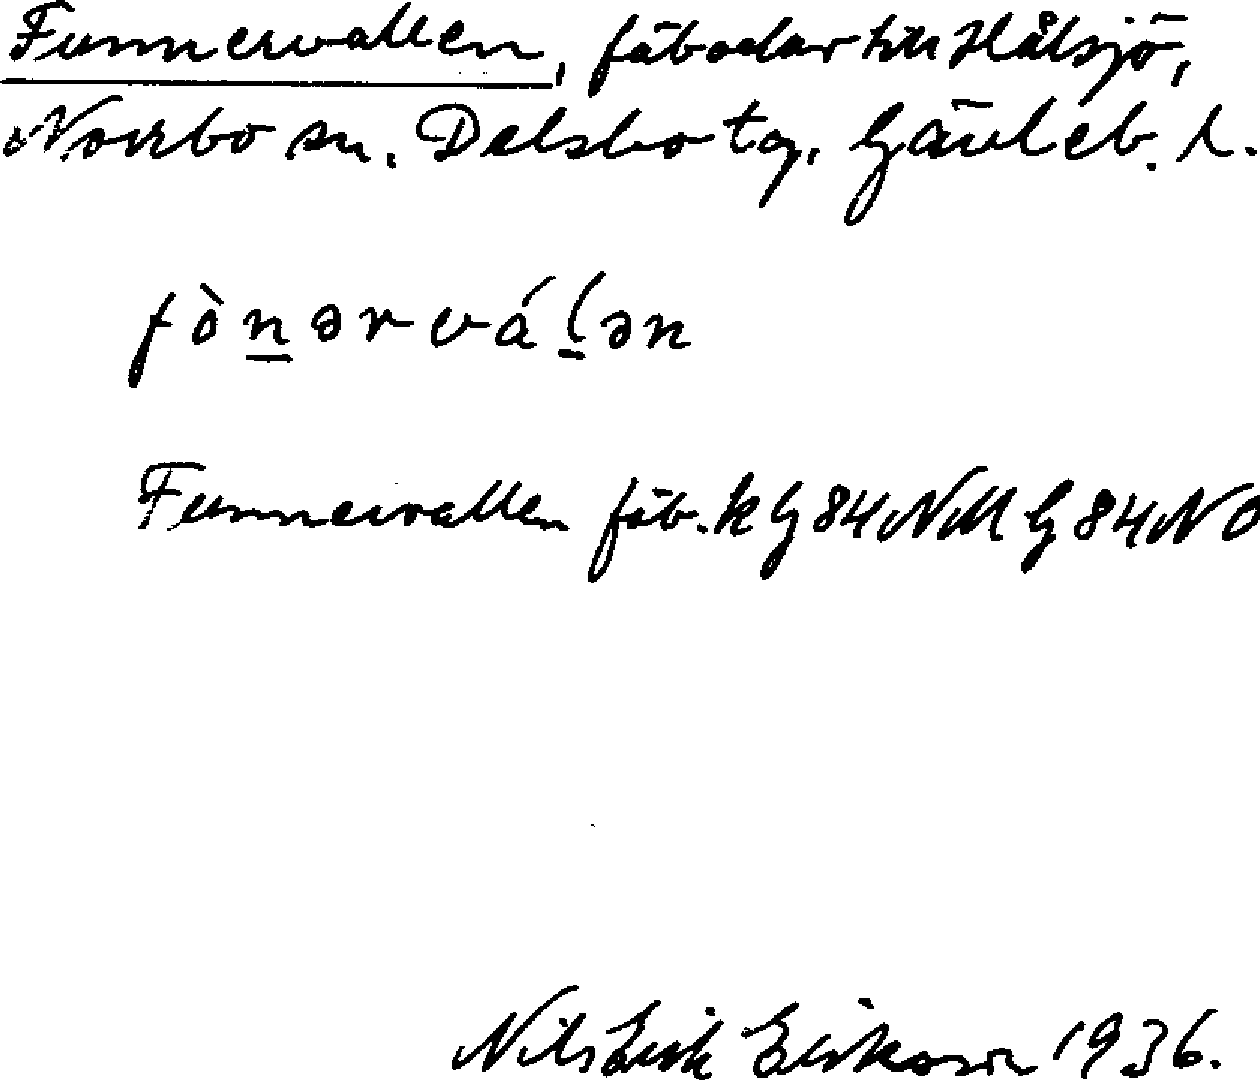 Funnervallen, fäbodar till Hålsjö,
Norrbo sn. Delsbo tg. Gävleb. l.
fònərválən
Funnervallen fäb. k G 84 NM G 84 NO
Nils Erik Erikson 1936.